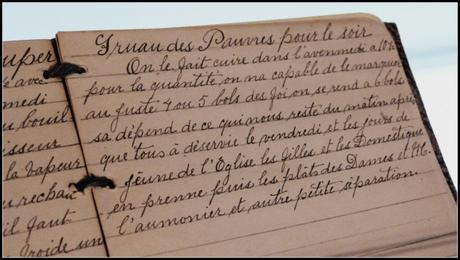 uper
avec
medi
u bouil-
isseur
la vapeur
u rechau
il faut
froide un
Gruau des Pauvres pour le soir
On le fait cuire dans l'avenmedi a 10h
pour la quantité on na capable de le marquer
au juste 4 ou 5 bols des foi on se rend a 6 bols
sa dépend de ce qui nous reste du matin après
que tous à déservie le vendredi et les jours de
jeûne de l'Eglise les filles et les Domestique
en prenne puis les plâts des Dames et Mr.
l'aumonier et autre petite siparation.